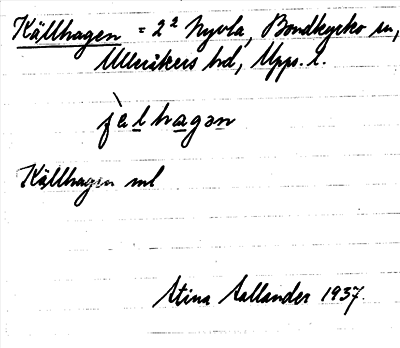 Källhagen = 2² Nyvla, Bondkyrko sn,
Ulleråkers hd, Upps. l.
Källhagen ml
Stina Sallander 1937.